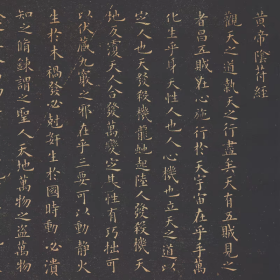 黃帝陰符經
觀天之道執天之行盡矣天有五賊見之
者昌五賊在心施行於天宇宙在乎手萬
化生乎身天性人也人心機也立天之道以
定人也天發殺機龍虵起陸人發殺機天
地反覆天人合發萬變定基性有巧拙可
以伏藏九竅之邪在乎三要可以動靜火
生於木禍發必尅奸生於國時動必潰
知之脩鍊謂之聖人天地萬物之盜萬物